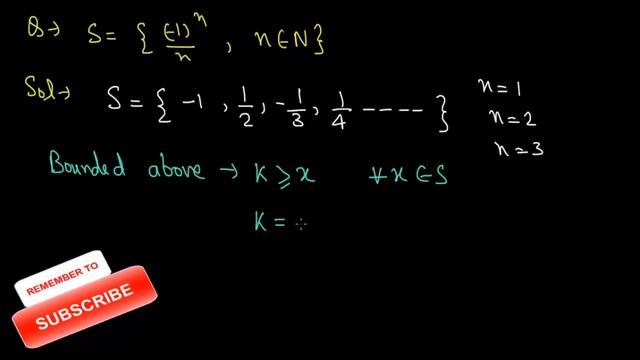 Q→ S = { (-1)^n / n , n ∈ N }
Sol→ S = { -1 , 1/2 , -1/3 , 1/4 ---- }
n = 1
n = 2
n = 3
Bounded above → K ⩾ x ∀ x ∈ S
K =
REMEMBER TO
SUBSCRIBE